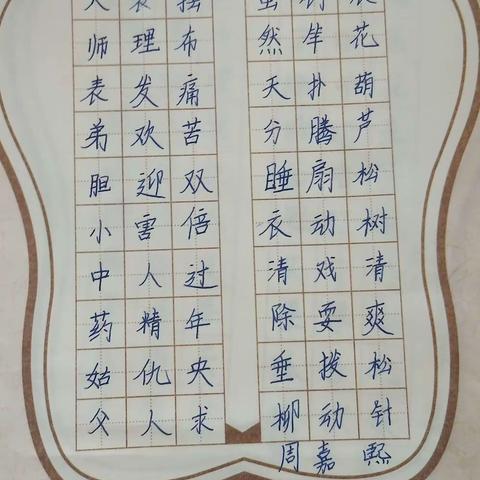 师表弟胆小中药姑父
理发欢迎害人精仇人
摆布痛苦双倍过年央求
然天分睡衣清除垂柳
扑腾扇动戏耍拨动
花葫芦松树清爽松针
周嘉熙